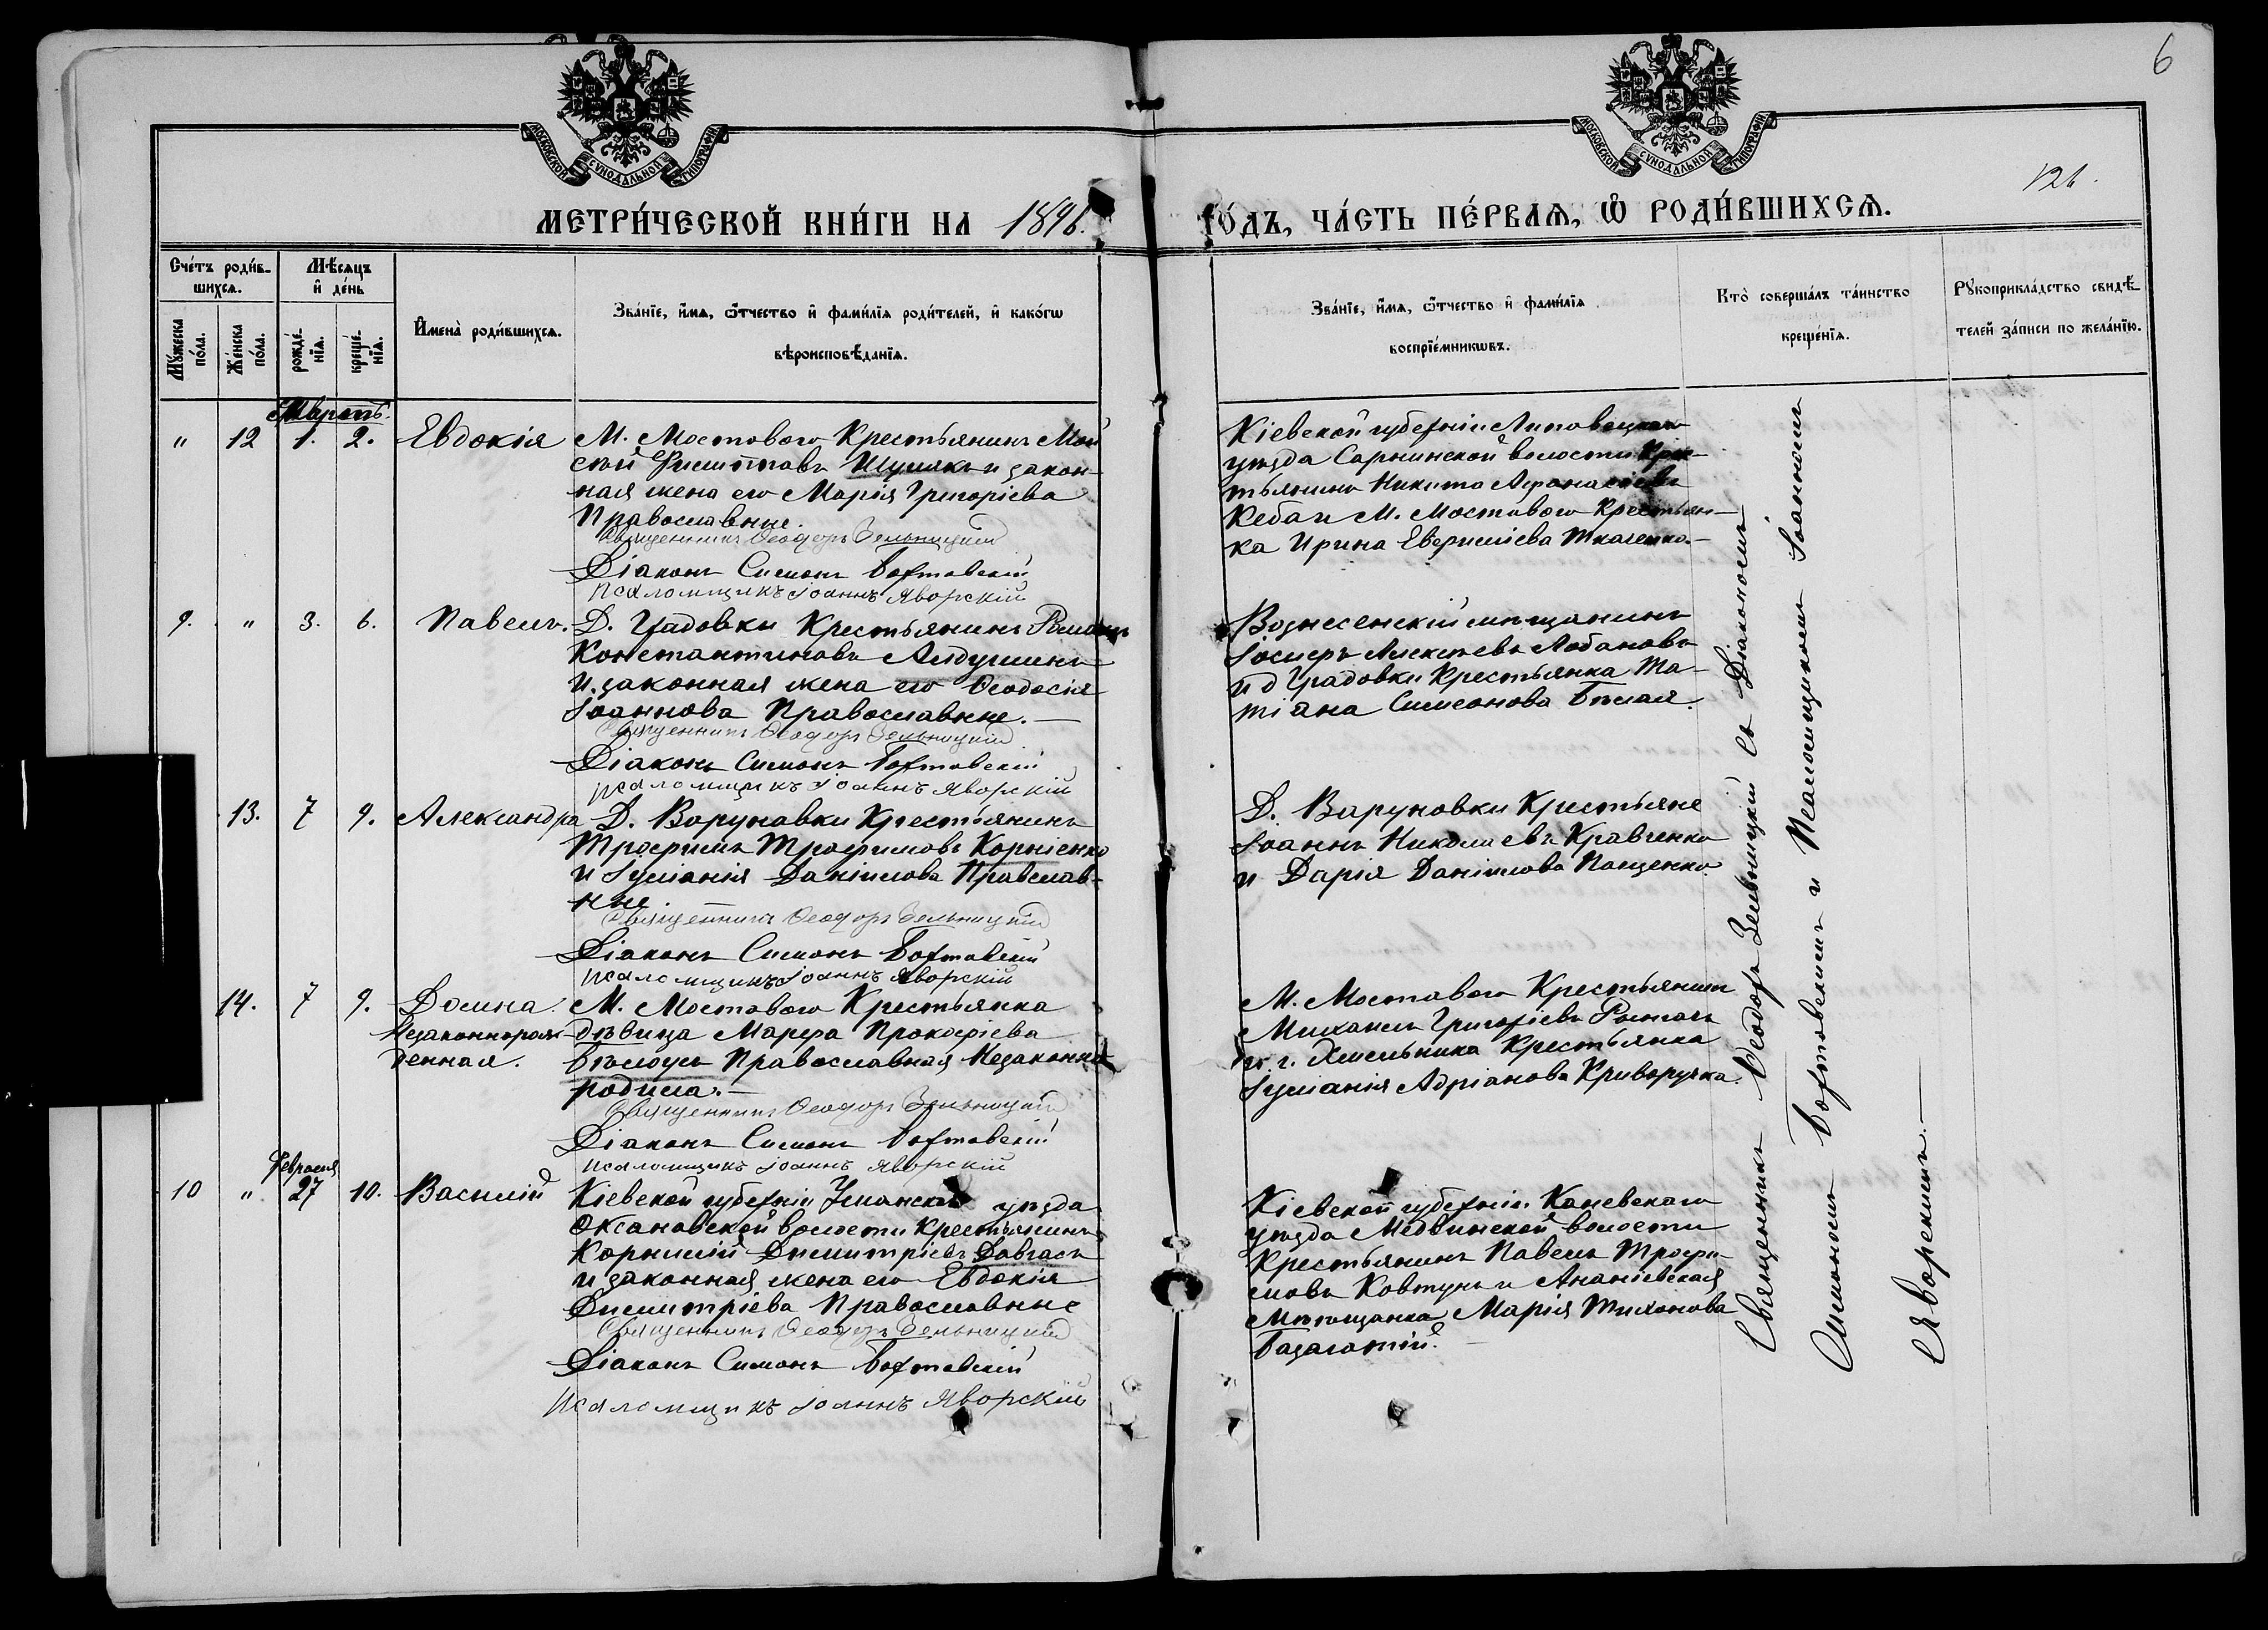 6
126.
МОСКОВСКОЙ СѴНОДАЛЬНОЙ ТИПОГРАФІИ
МОСКОВСКОЙ СѴНОДАЛЬНОЙ ТИПОГРАФІИ
МЕТРИ́ЧЕСКОЙ КНИ́ГИ НА 1896. ГО́ДЪ, ЧА́СТЬ ПЕ́РВАѦ, Ѡ РОДИ́ВШИХСѦ.
Сче́тъ роди́в-
шихсѧ.
Мꙋ́жеска по́ла.
Же́нска по́ла.
Мѣ́сѧцъ и де́нь
рожде́-
нїѧ.
креще́-
нїѧ.
И҆мена̀ роди́вшихсѧ.
Зва́нїе, и҆́мѧ, ѻ҆́тчество и҆ фами́лїѧ роди́телей, и҆ како́гѡ
вѣроисповѣ́данїѧ.
Зва́нїе, и҆́мѧ, ѻ҆́тчество и҆ фами́лїѧ
воспрїе́мникѡвъ.
Кто̀ соверша́лъ та́инство
креще́нїѧ.
Рꙋкоприкла́дство свидѣ́-
телей за́писи по жела́нїю.
Мартъ.
" 12 1. 2. Евдокія
М. Мостового Крестьянинъ Мои
сей Филиповъ Шумякъ и закон-
ная жена его Марія Григоріева
Православные.
Священникъ Ѳеодоръ Зельницкій
Діаконъ Симонъ Бортовскій
Псаломщикъ Іоаннъ Яворскій
Кіевской губерніи Липовецкого
уѣзда Сарнинской волости Крес-
тьянинъ Никита Афанасіевъ
Кеба и М. Мостового Крестьян-
ка Ирина Ткаченко.
9. " 3. 6. Павелъ.
Д. Градовки Крестьянинъ Романъ
Константиновъ
и законная жена его Ѳеодосія
Іоаннова Православные.
Священникъ Ѳеодоръ Зельницкій
Діаконъ Симонъ Бортовскій
Псаломщикъ Іоаннъ Яворскій
Вознесенскій мѣщанинъ
Іосифъ Алексѣевъ Лобановъ
и д Градовки Крестьянка Та-
тіана Симеонова Бѣлая.
13. 7 9. Александра
Д. Варуновки Крестьянинъ
Трофимъ Трофимовъ Корніенко
и Іуліанія Даніилова Православ-
ные.
Священникъ Ѳеодоръ Зельницкій
Діаконъ Симонъ Бортовскій
Псаломщикъ Іоаннъ Яворскій
Д. Варуновки Крестьяне
Іоаннъ Николаевъ Кравченко
и Дарія Даніилова Пащенко.
14. 7 9. Домна.
Незаконнорож-
денная.
М. Мостового Крестьянка
дѣвица Марфа Прокофіева
Бѣлоусъ Православная Незаконно
родила.
Священникъ Ѳеодоръ Зельницкій
Діаконъ Симонъ Бортовскій
Псаломщикъ Іоаннъ Яворскій
М. Мостового Крестьянинъ
Михаилъ Григоріевъ
и г. Хмельника Крестьянка
Іуліанія Адріанова Криворучка.
Февраля
10 " 27 10. Василій
Кіевской губерніи Уманскаго уѣзда
Оксановской волости Крестьянинъ
Корнилій Димитріевъ Довгасъ
и законная жена его Евдокія
Димитріева Православные
Священникъ Ѳеодоръ Зельницкій
Діаконъ Симонъ Бортовскій
Псаломщикъ Іоаннъ Яворскій
Кіевской губерніи Каневскаго
уѣзда Медвинской волости
Крестьянинъ Павелъ Трофи-
мовъ Ковтунъ и Ананіевская
Мѣщанка Марія Тихонова
Священникъ Ѳеодоръ Зельницкій съ Діакономъ
Симономъ Бортовскимъ и Псаломщикомъ Іоанномъ
Яворскимъ.